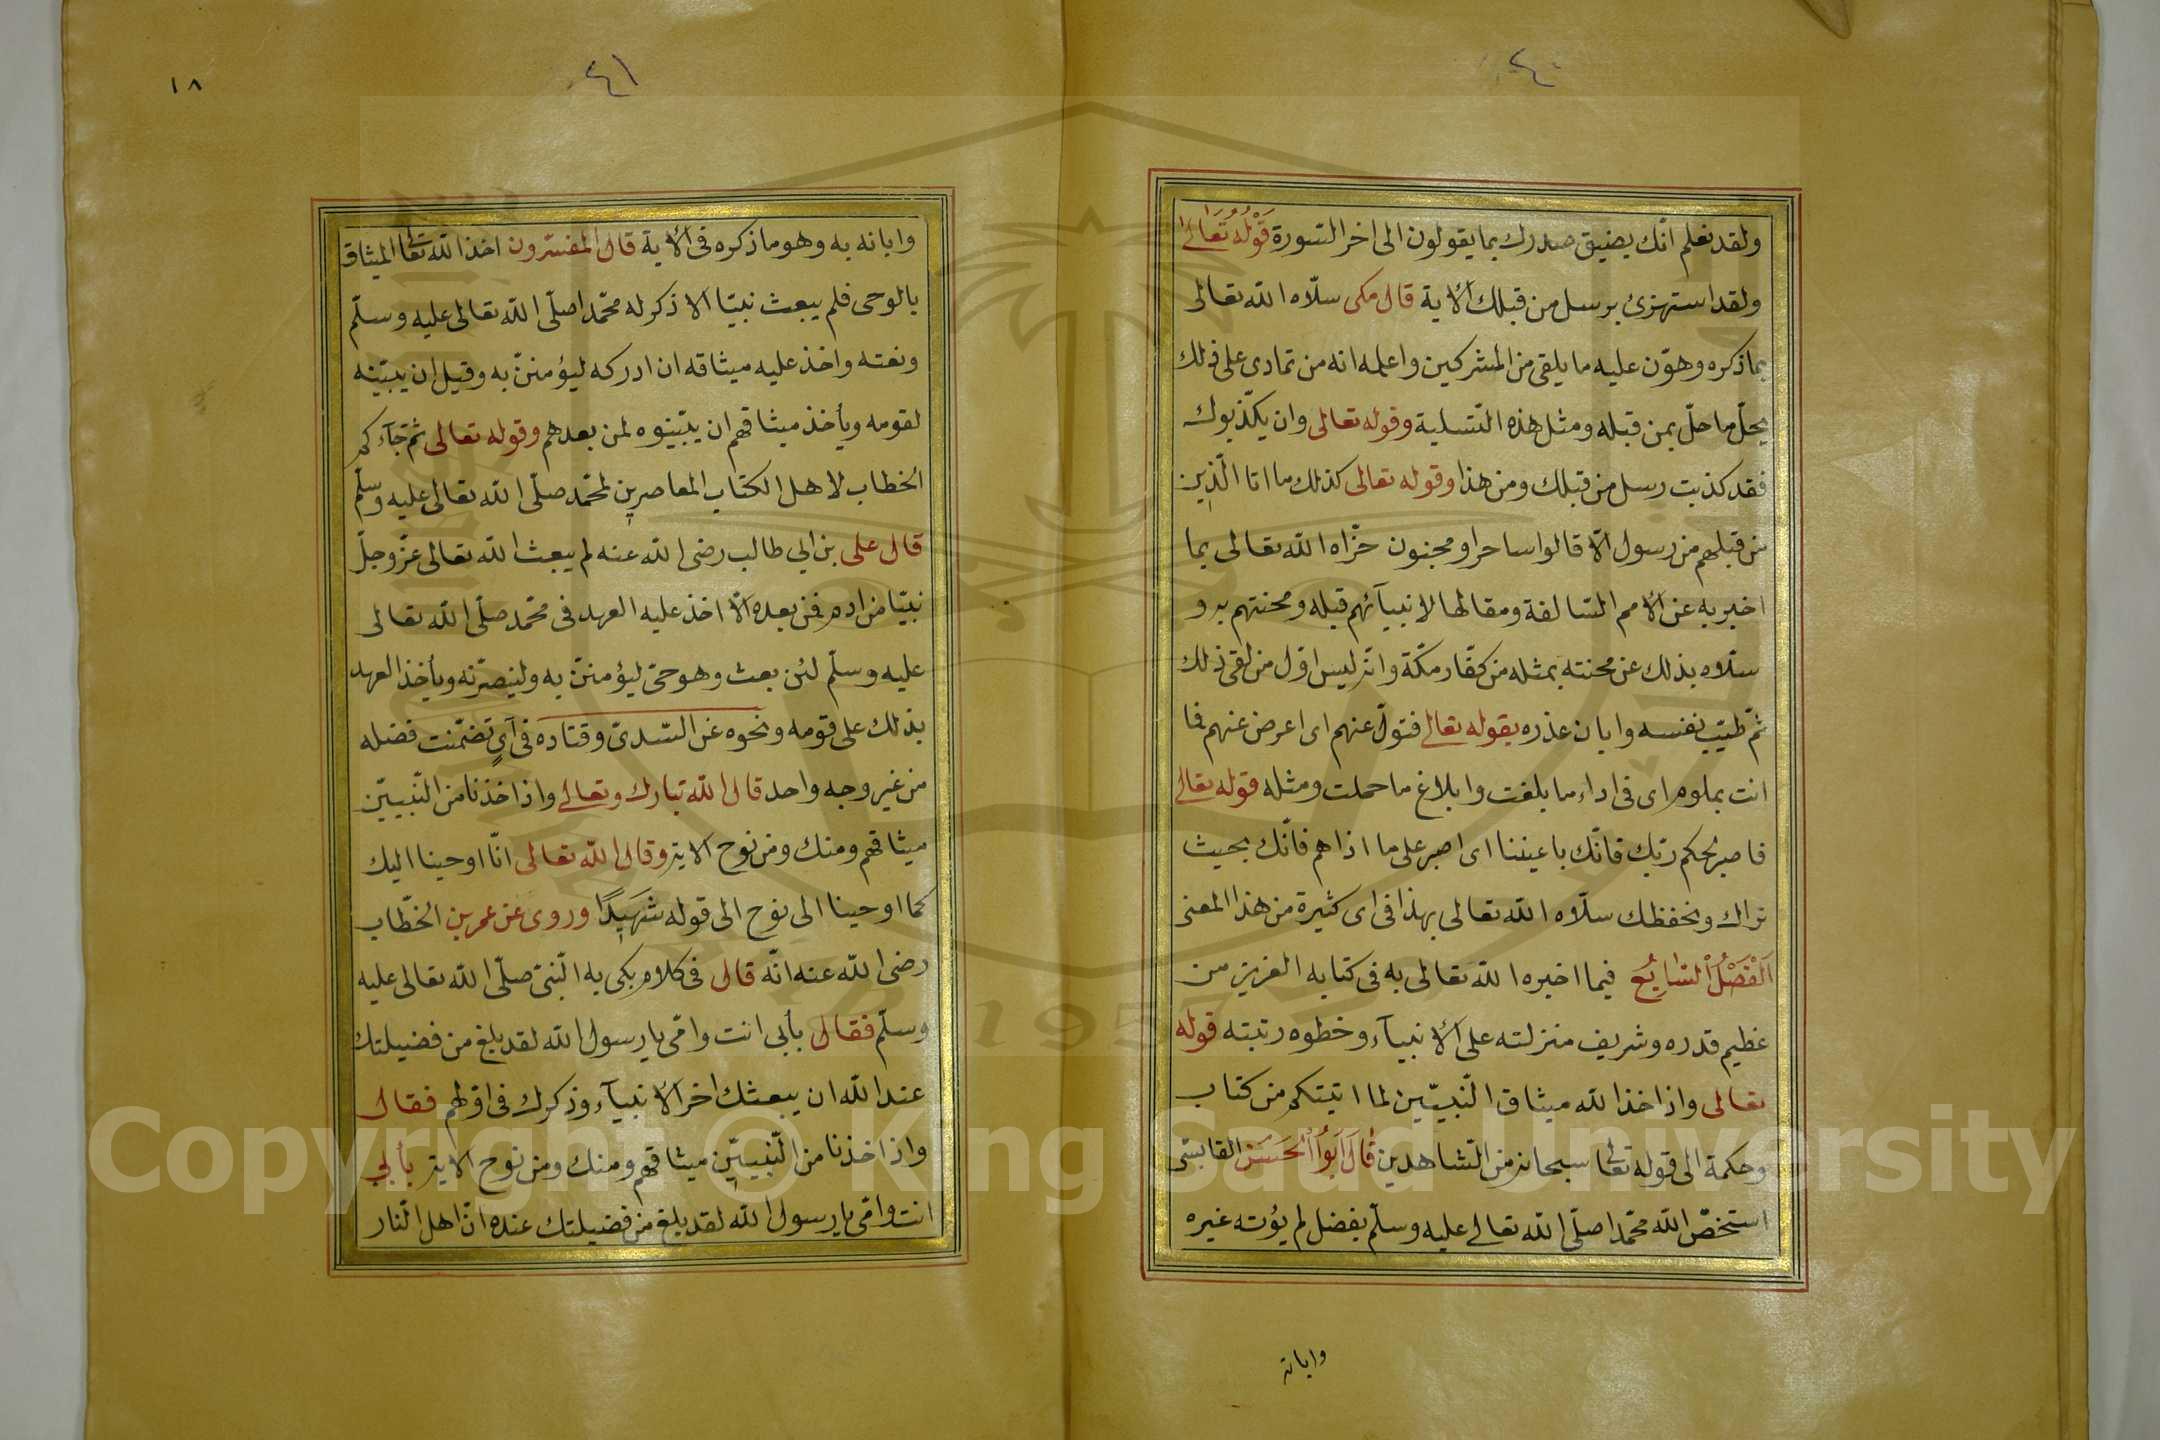 ٤٠
ولقد نعلم انّك يضيق صدرك بما يقولون الى اخر السورة قَوْلُهُ تَعَالى
ولقد استهزئ برسل من قبلك الاية قال مكى سلّاه الله تعالى
بما ذكره وهوّن عليه ما يلقى من المشركين واعلمه انه من تمادى على ذلك
يحلّ ما حلّ بمن قبله ومثل هذه التّسلية وقوله تعالى وان يكذّبوك
فقد كذبت رسل من قبلك ومن هذا وقوله تعالى كذلك ما اتا الّذين
من قبلهم من رسول الّا قالوا ساحر او مجنون عزّاه الله تعالى بما
اخبر به عن الامم السّالفة ومقالها لانبيآئهم قبله ومحنتهم بهم و
سلّاه بذلك عن محنته بمثله من كفّار مكّة وانّه ليس اوّل من لقى ذلك
ثمّ طيّب نفسه وابان عذره بقوله تعالى فتولّ عنهم اى اعرض عنهم فما
انت بملوم اى فى اداء ما بلغت وابلاغ ما حملت ومثله قوله تعالى
فاصبر لحكم ربّك فانّك باعيننا اى اصبر على ما اذاهم فانّك بحيث
نراك ونحفظك سلّاه الله تعالى بهذا فى اى كثيرة من هذا المعنى
اَلْفَصْلُ السَّابِعُ فيما اخبره الله تعالى به فى كتابه العزيز من
عظيم قدره وشريف منزلته على الانبيآء وخطوه رتبته قوله
تعالى واذ اخذ الله ميثاق النّبيّين لما اتيتكم من كتاب
وحكمة الى قوله تعالى سبحانه من الشّاهدين قَالَ اَبُوا الْحَسَن القابسى
استخصّ الله محمّدا صلّى الله تعالى عليه وسلّم بفضل لم يؤته غيره
وابانه
٤١
١٨
وابانه به وهو ما ذكره فى الاية قال المفسّرون اخذ الله تعالى الميثاق
بالوحى فلم يبعث نبيّا الا ذكر له محمّدا صلّى الله تعالى عليه وسلّم
ونعته واخذ عليه ميثاقه ان ادركه ليؤمننّ به وقيل ان يبيّنه
لقومه ويأخذ ميثاقهم ان يبيّنوه لمن بعدهم وقوله تعالى ثمّ جآءكم
الخطاب لاهل الكتاب المعاصرين لمحمّد صلّى الله تعالى عليه وسلّم
قال على بن ابي طالب رضى الله عنه لم يبعث الله تعالى عزّ وجلّ
نبيّا من ادم فمن بعده الّا اخذ عليه العهد فى محمّد صلّى الله تعالى
عليه وسلّم لئن بعث وهو حىّ ليؤمننّ به ولينصرّنه ويأخذ العهد
بذلك على قومه ونحوه عن السّدىّ وقتاده فى آىٍ تضمّنت فضله
من غير وجه واحد قال الله تبارك وتعالى واذ اخذنا من النّبيين
ميثاقهم ومنك ومن نوح الاية وقال الله تعالى انّا اوحينا اليك
كما اوحينا الى نوح الى قوله شَهِيدًا وروى عن عمر بن الخطّاب
رضى الله عنه انّه قال فى كلام بكى به النّبىّ صلّى الله تعالى عليه
وسلّم فقال بأبى انت وامّى يا رسول الله لقد بلغ من فضيلتك
عند الله ان يبعثك اخر الانبيآء وذكرك فى اوّلهم فقال
واذ اخذنا من النّبييّن ميثاقهم ومنك ومن نوح الاية بأبى
انت وامّى يا رسول الله لقد بلغ من فضيلتك عنده انّ اهل النّار
1957
Copyright © King Saud University